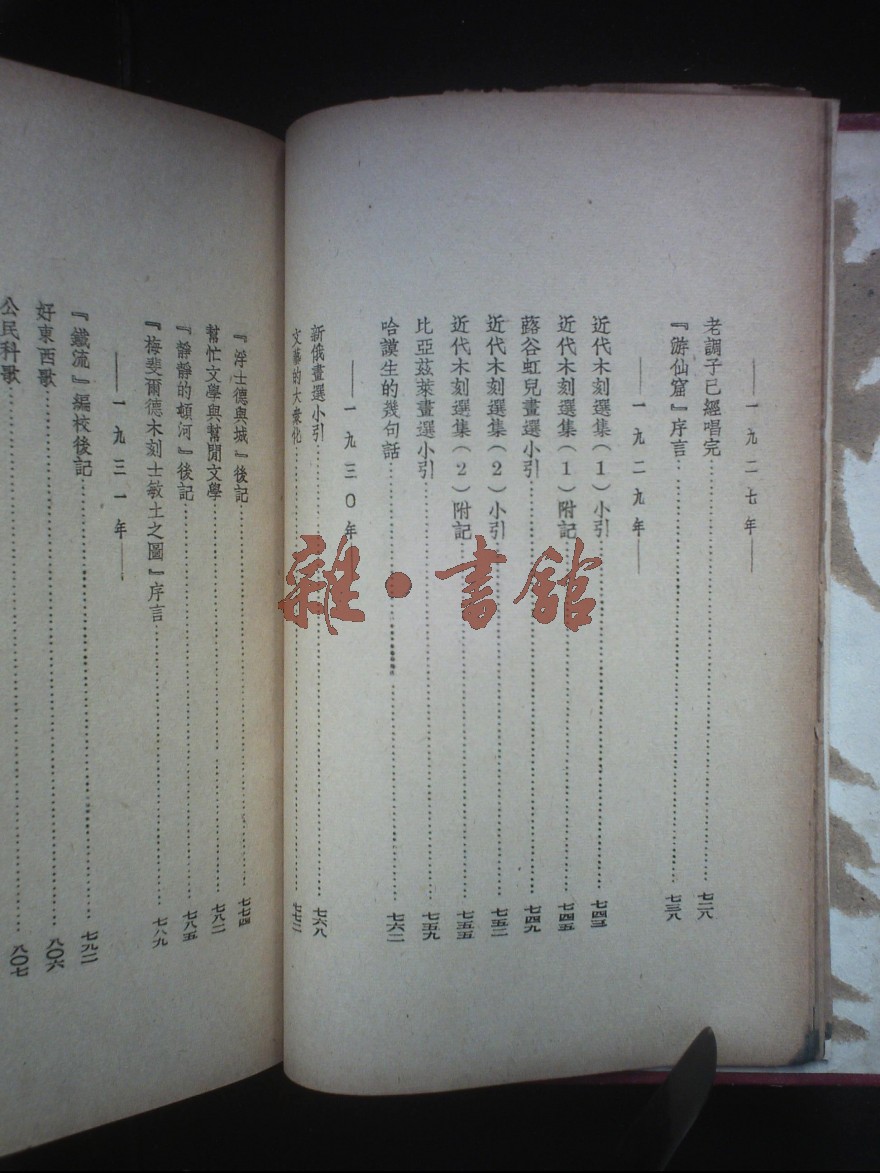 ——一九二七年——
老調子已經唱完……七二八
『游仙窟』序言……七三八
——一九二九年——
近代木刻選集(1)小引……七四三
近代木刻選集(1)附記……七四五
蕗谷虹兒畫選小引……七四九
近代木刻選集(2)小引……七五二
近代木刻選集(2)附記……七五五
比亞茲萊畫選小引……七五九
哈謨生的幾句話……七六二
——一九三〇年
新俄畫選小引……七六八
文藝的大衆化……七七二
『浮士德與城』後記……七七四
幫忙文學與幫閒文學……七八二
『靜靜的頓河』後記……七八五
『梅斐爾德木刻士敏土之圖』序言……七八九
——一九三一年——
『鐵流』編校後記……七九二
好東西歌……八〇六
公民科歌……八〇七
雜·書館